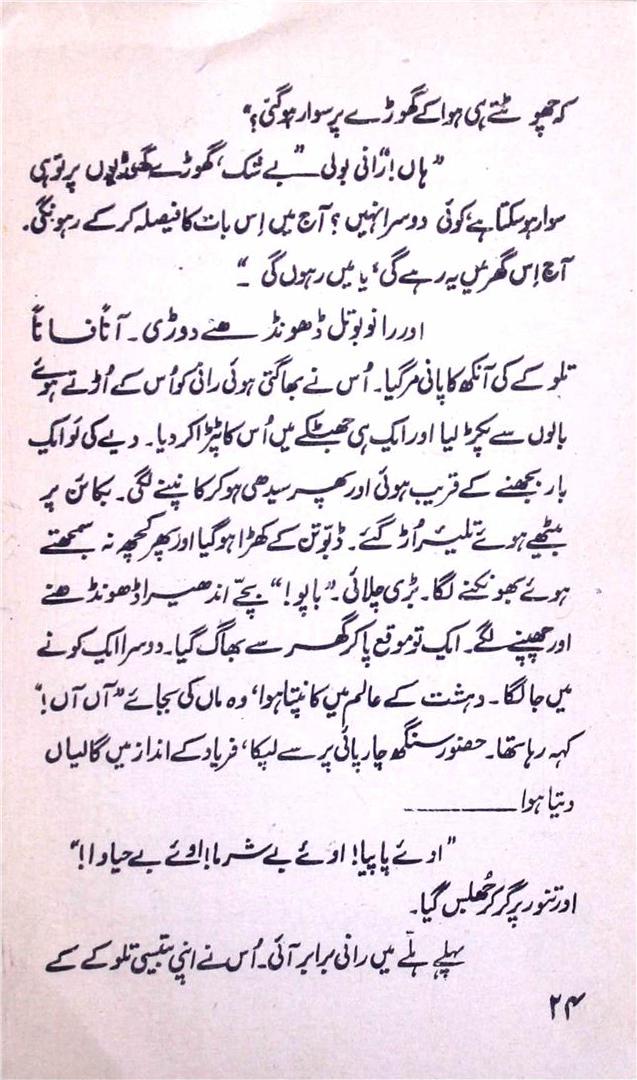 کہ چھو ٹتے ہی ہوا کے گھوڑے پر سوار ہوگئی؟“
”ہاں!“ رانی بولی ”بے شک، گھوڑے گھوڑیوں پر تو ہی
سوار ہوسکتا ہے، کوئی دوسرا نہیں؟ آج میں اِس بات کا فیصلہ کرکے رہونگی۔
آج اِس گھر میں یہ رہے گی، یا میں رہوں گی ـــ“
اور رانو بوتل ڈھونڈ ھنے دوڑی۔ آناً فاناً
تلوکے کی آنکھ کا پانی مرگیا۔ اُس نے بھاگتی ہوئی رانی کو اُس کے اُڑتے ہوئے
بالوں سے پکڑ لیا اور ایک ہی جھٹکے میں اُس کا پٹڑا کر دیا۔ دیے کی لَو ایک
بار بجھنے کے قریب ہوئی اور پھر سیدھی ہوکر کانپنے لگی۔ بکائن پر
بیٹھے ہوئے تلیئر اُڑ گئے۔ ڈبّو تن کے کھڑا ہوگیا اور پھر کچھ نہ سمجھتے
ہوئے بھونکنے لگا۔ بڑی چلائی۔ ”باپو!“ بچّے اندھیرا ڈھونڈھنے
اور چھپنے لگے۔ ایک تو موقع پاکر گھر سے بھاگ گیا۔ دوسرا ایک کونے
میں جا لگا۔ دہشت کے عالم میں کانپتا ہوا، وہ ماں کی بجائے ”آں آں!“
کہہ رہا تھا۔ حضور سنگھ چارپائی پر سے لپکا، فریاد کے انداز میں گالیاں
دیتا ہوا ــــــــــــ
”اوئے پاپیا! اوئے بے شرما! اوئے بے حیاوا!“
اور تنور پر گر کر جُھلس گیا۔
پہلے ہلّے میں رانی برابر آئی۔ اُس نے اپنی بتیسی تلوکے کے
۲۴